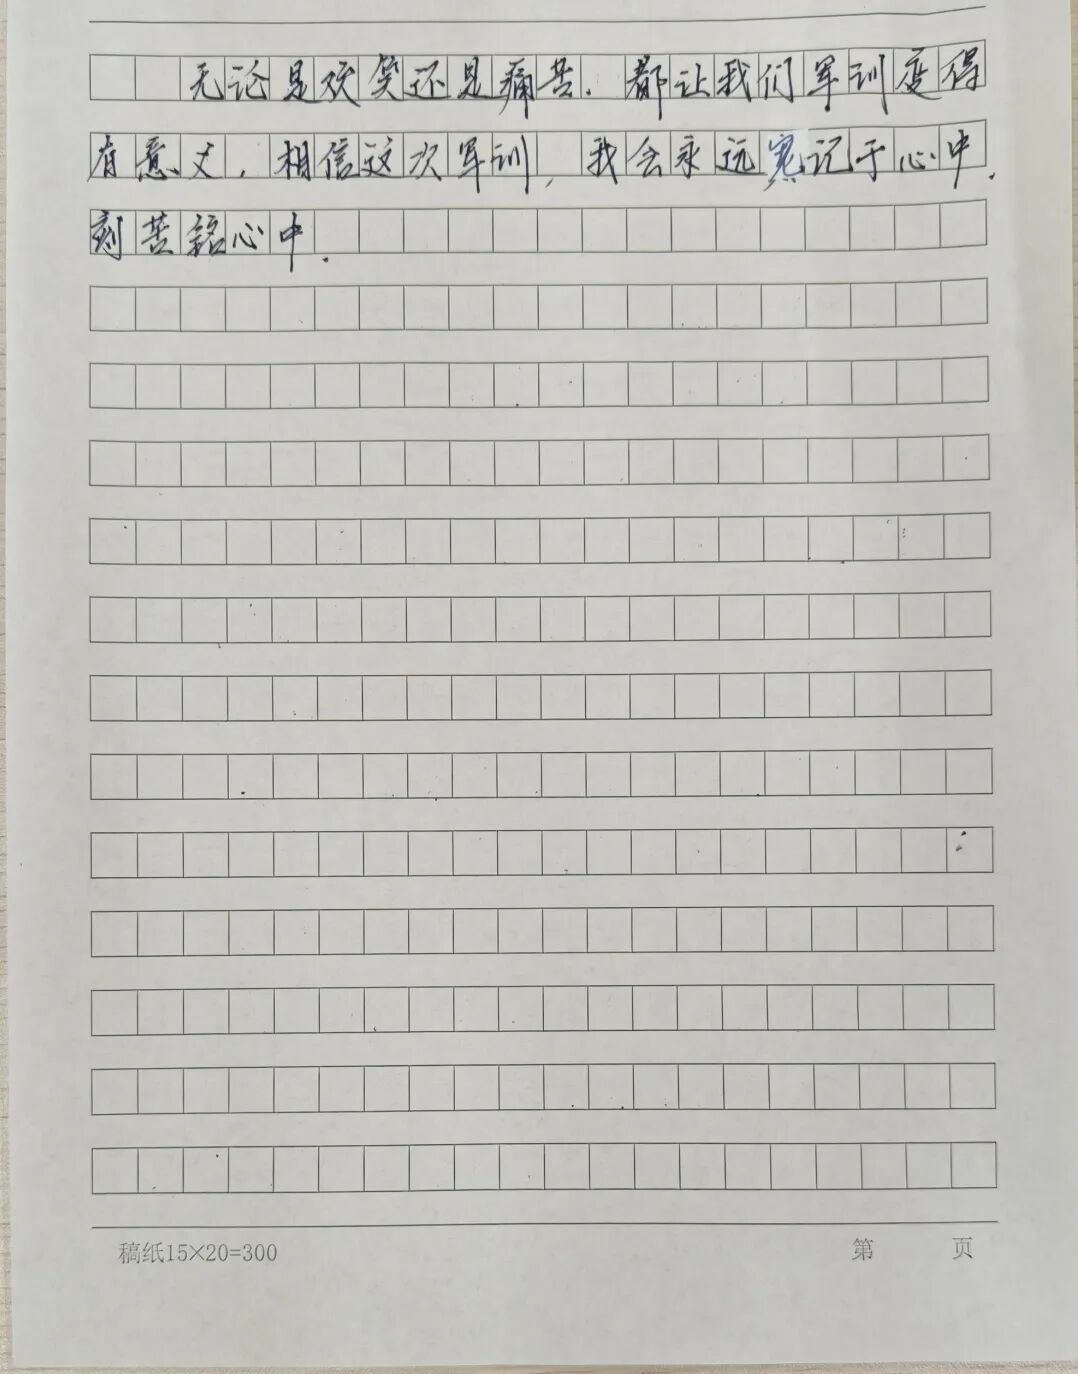 无论是欢笑还是痛苦.都让我们军训变得
有意义,相信这次军训,我会永远记于心中.
刻苦铭心中.
稿纸15×20=300
第 页